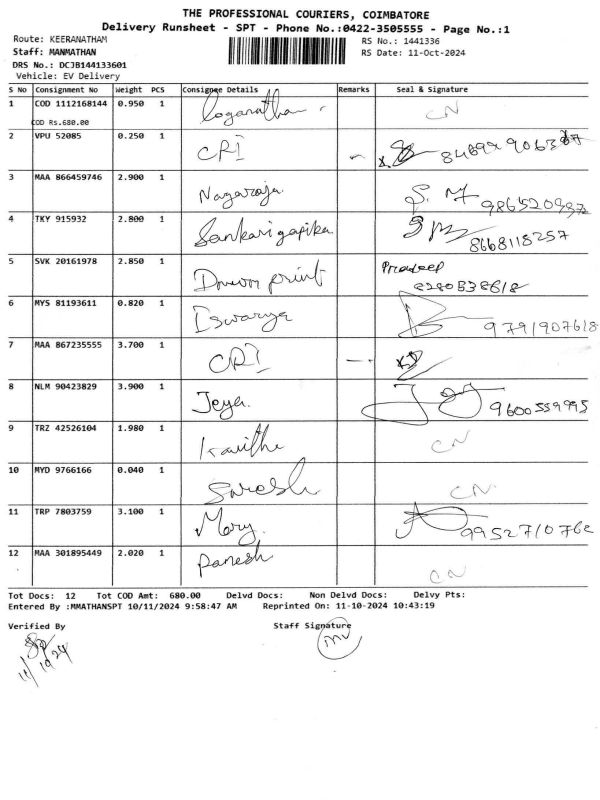 THE PROFESSIONAL COURIERS, COIMBATORE
Delivery Runsheet - SPT - Phone No.:0422-3505555 - Page No.:1
Route: KEERANATHAM RS No.: 1441336
Staff: MANMATHAN RS Date: 11-Oct-2024
DRS No.: DCJB144133601
Vehicle: EV Delivery
S No Consignment No Weight PCS Consignee Details Remarks Seal & Signature
1 COD 1112168144 0.950 1 Loganathan CN
COD Rs.680.00
2 VPU 52085 0.250 1 CRI
3 MAA 866459746 2.900 1 Nagaraja S. M
4 TKY 915932 2.800 1 Sankarigapika 8668118257
5 SVK 20161978 2.850 1 print Pradeep
8280838618
6 MYS 81193611 0.820 1 Iswarya 9791907618
7 MAA 867235555 3.700 1 CRI
8 NLM 90423829 3.900 1 Jeya. 9600559995
9 TRZ 42526104 1.980 1 Kavitha CN
10 MYD 9766166 0.040 1 Suresh CN
11 TRP 7803759 3.100 1 Mary. 9952710762
12 MAA 301895449 2.020 1 Ramesh CN
Tot Docs: 12 Tot COD Amt: 680.00 Delvd Docs: Non Delvd Docs: Delvy Pts:
Entered By :MMATHANSPT 10/11/2024 9:58:47 AM Reprinted On: 11-10-2024 10:43:19
Verified By Staff Signature
11/10/24